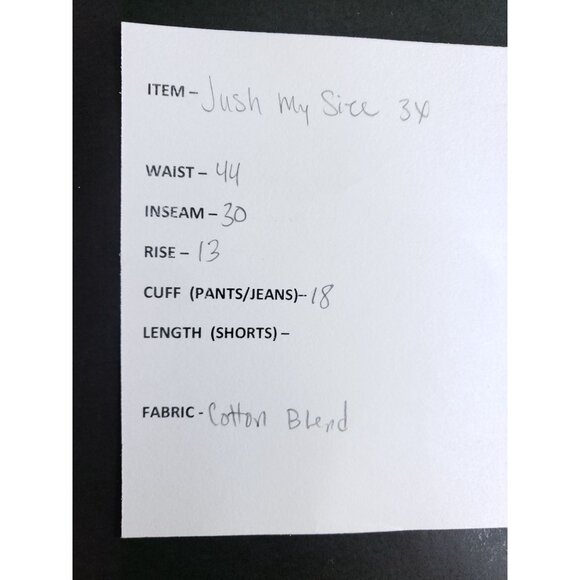 ITEM – Just My Size 3X
WAIST – 44
INSEAM – 30
RISE – 13
CUFF (PANTS/JEANS)-- 18
LENGTH (SHORTS) –
FABRIC - Cotton Blend